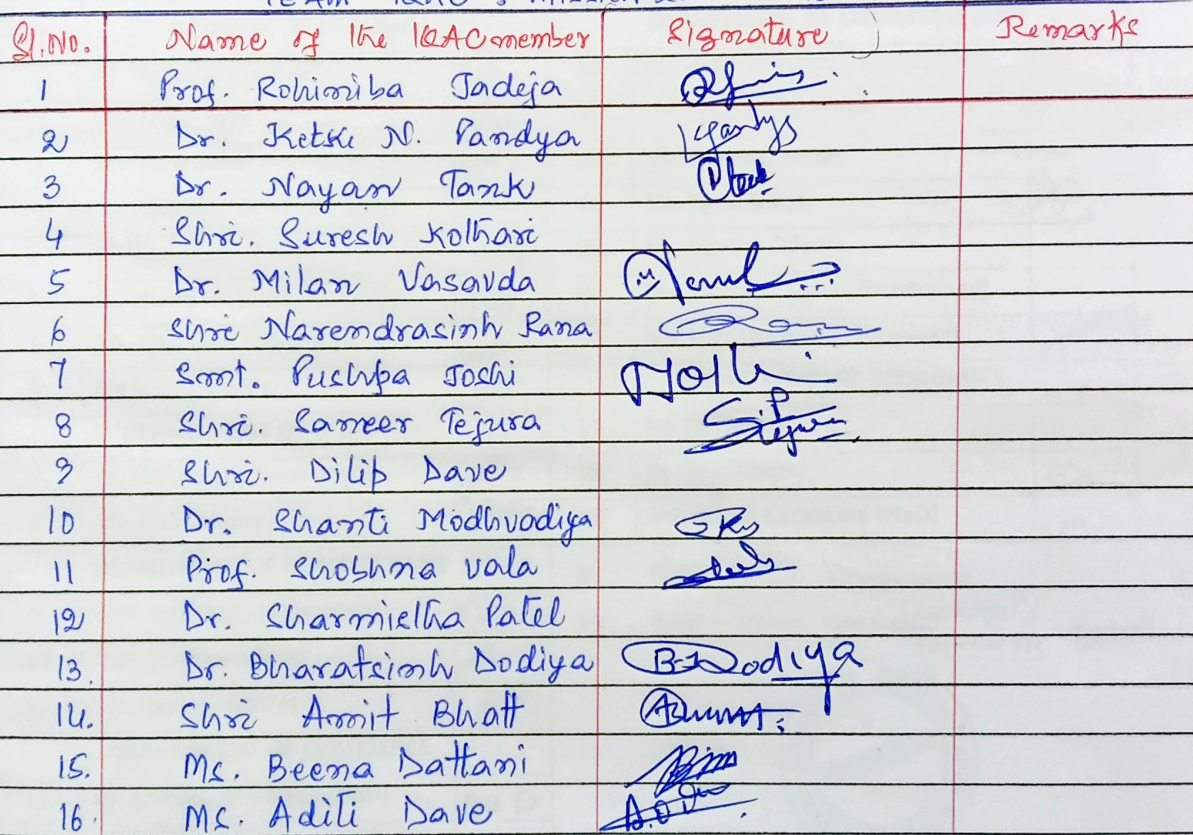 Sl.No. Name of the IQAC member Signature Remarks
1 Prof. Rohiniba Jadeja
2 Dr. Ketki N. Pandya
3 Dr. Nayan Tank
4 Shri. Suresh Kothari
5 Dr. Milan Vasavda
6 Shri Narendrasinh Rana
7 Smt. Pushpa Joshi
8 Shri. Sameer Tejura
9 Shri. Dilip Dave
10 Dr. Shanti Modhvadiya
11 Prof. Shobhna Vala
12 Dr. Sharmistha Patel
13. Dr. Bharatsinh Dodiya B.J.Dodiya
14. Shri Amit Bhatt
15. Ms. Beena Dattani
16. Ms. Aditi Dave